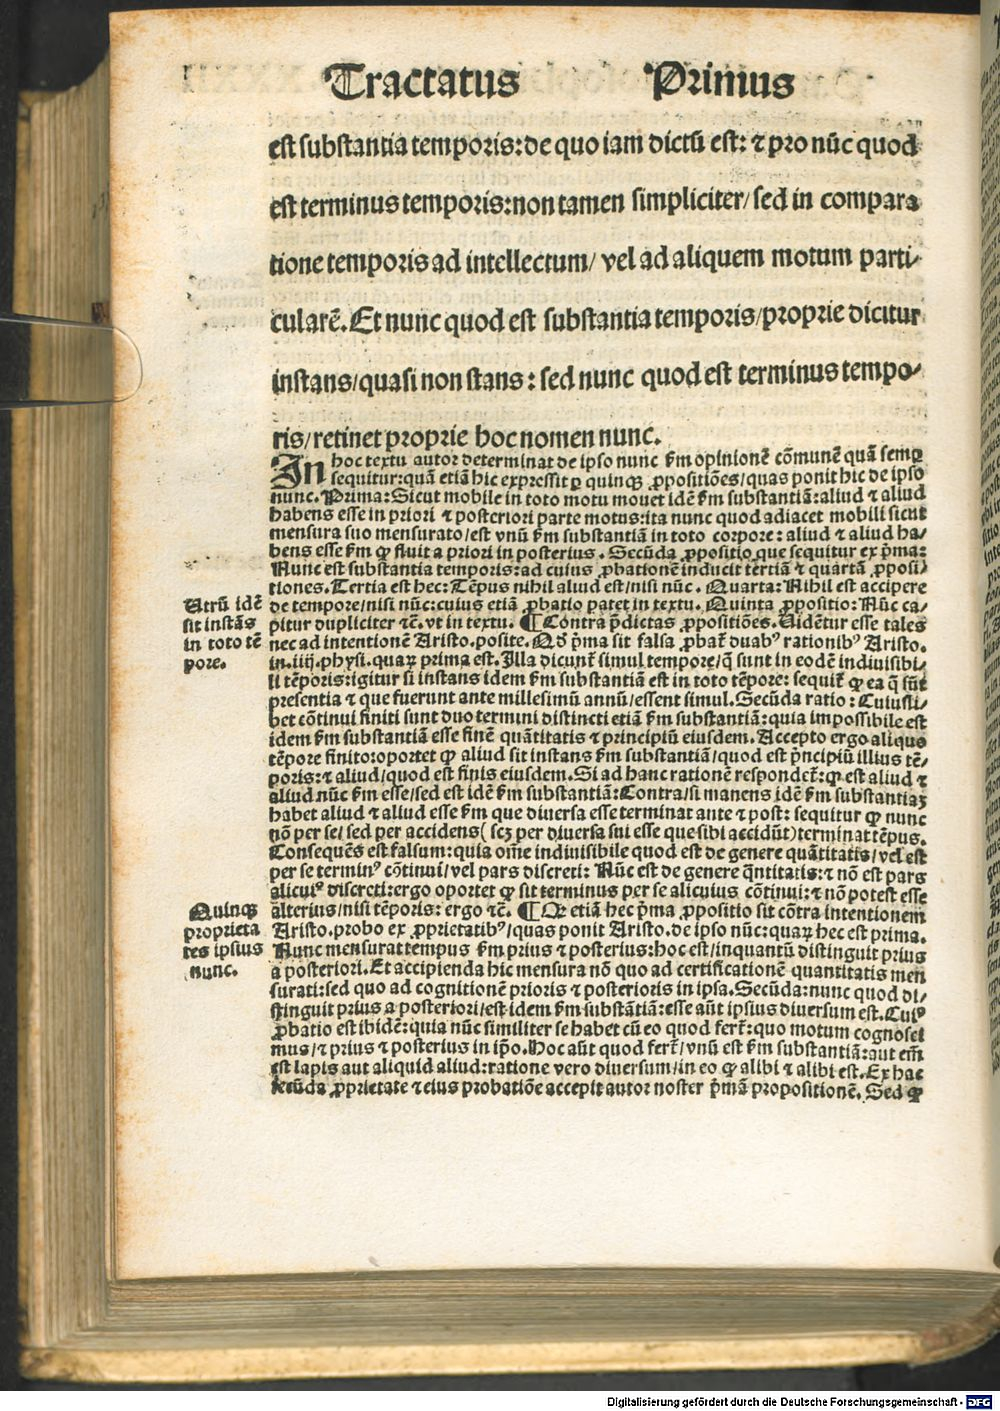 Tractatus Primus
est substantia temporis: de quo iam dictū est: ⁊ pro nūc quod
est terminus temporis: non tamen simpliciter/ sed in compara
tione temporis ad intellectum/ vel ad aliquem motum parti⸗
cularē. Et nunc quod est substantia temporis/ proprie dicitur
instans/ quasi non stans: sed nunc quod est terminus tempo⸗
ris/ retinet proprie hoc nomen nunc.
In hoc textu autor determinat de ipso nunc ẜm opinionē cōmunē quā semꝑ
sequitur: quā etiā hic expressit ꝑ quinqꝫ ꝓpositiōes/ quas ponit hic de ipso
nunc. Prima: Sicut mobile in toto motu mouet idē ẜm substantiā: aliud ⁊ aliud
habens esse in priori ⁊ posteriori parte motus: ita nunc quod adiacet mobili sicut
mensura suo mensurato/ est vnū ẜm substantiā in toto corpore: aliud ⁊ aliud ha⸗
bens esse ẜm ꝙ fluit a priori in posterius. Secūda ꝓpositio que sequitur ex p̄ma:
Nunc est substantia temporis: ad cuius ꝓbationē inducit tertiā ⁊ quartā ꝓposi⸗
tiones. Tertia est hec: Tēpus nihil aliud est/ nisi nūc. Quarta: Nihil est accipere
Utrū idē
sit instās
in toto tē
pore.
de tempore/ nisi nūc: cuius etiā ꝓbatio patet in textu. Quinta ꝓpositio: Nūc ca⸗
pitur dupliciter ⁊c̄. vt in textu. ¶ Contra p̄dictas ꝓpositiōes. Uidētur esse tales
nec ad intentionē Aristo. posite. Qd̄ p̄ma sit falsa ꝓbat̄ duabꝰ rationibꝰ Aristo.
in. iiij. physi. quaꝝ prima est. Illa dicunt̄ simul tempore/ q̄ sunt in eodē indiuisibi⸗
li tēporis: igitur si instans idem ẜm substantiā est in toto tēpore: sequit̄ ꝙ ea q̄ sūt
presentia ⁊ que fuerunt ante millesimū annū/ essent simul. Secūda ratio: Cuiusli⸗
bet cōtinui finiti sunt duo termini distincti etiā ẜm substantiā: quia impossibile est
idem ẜm substantiā esse finē quātitatis ⁊ principiū eiusdem. Accepto ergo aliquo
tēpore finito: oportet ꝙ aliud sit instans ẜm substantiā/ quod est p̄ncipiū illius tē⸗
poris: ⁊ aliud/ quod est finis eiusdem. Si ad hanc rationē respondet̄: ꝙ est aliud ⁊
aliud nūc ẜm esse/ sed est idē ẜm substantiā: Contra/ si manens idē ẜm substantiaꝫ
habet aliud ⁊ aliud esse ẜm que diuersa esse terminat ante ⁊ post: sequitur ꝙ nunc
nō per se/ sed per accidens (scꝫ per diuersa sui esse que sibi accidūt) terminat tēpus.
Consequēs est falsum: quia om̄e indiuisibile quod est de genere quātitatis/ vel est
per se terminꝰ cōtinui/ vel pars discreti: Nūc est de genere q̄ntitatis: ⁊ nō est pars
alicuiꝰ discreti: ergo oportet ꝙ sit terminus per se alicuius cōtinui: ⁊ nō potest esse
Quinqꝫ
proprieta
tes ipsius
nunc.
alterius/ nisi tēporis: ergo ⁊c̄. ¶ Qꝙ etiā hec p̄ma ꝓpositio sit cōtra intentionem
Aristo. probo ex ꝓprietatibꝰ/ quas ponit Aristo. de ipso nūc: quaꝝ hec est prima.
Nunc mensurat tempus ẜm prius ⁊ posterius: hoc est/ inquantū distinguit prius
a posteriori. Et accipienda hic mensura nō quo ad certificationē quantitatis men
surati: sed quo ad cognitionē prioris ⁊ posterioris in ipsa. Secūda: nunc quod di⸗
stinguit prius a posteriori/ est idem ẜm substātiā: esse aūt ipsius diuersum est. Cuiꝰ
ꝓbatio est ibidē: quia nūc similiter se habet cū eo quod fert̄: quo motum cognosci
mus/ ⁊ prius ⁊ posterius in ip̄o. Hoc aūt quod fert̄/ vnū est ẜm substantiā: aut em̄
est lapis aut aliquid aliud: ratione vero diuersum/ in eo ꝙ alibi ⁊ alibi est. Ex hac
secūda ꝓprietate ⁊ eius probatiōe accepit autor noster p̄mā propositionē. Sed ꝙ
Digitalisierung gefördert durch die Deutsche Forschungsgemeinschaft - DFG